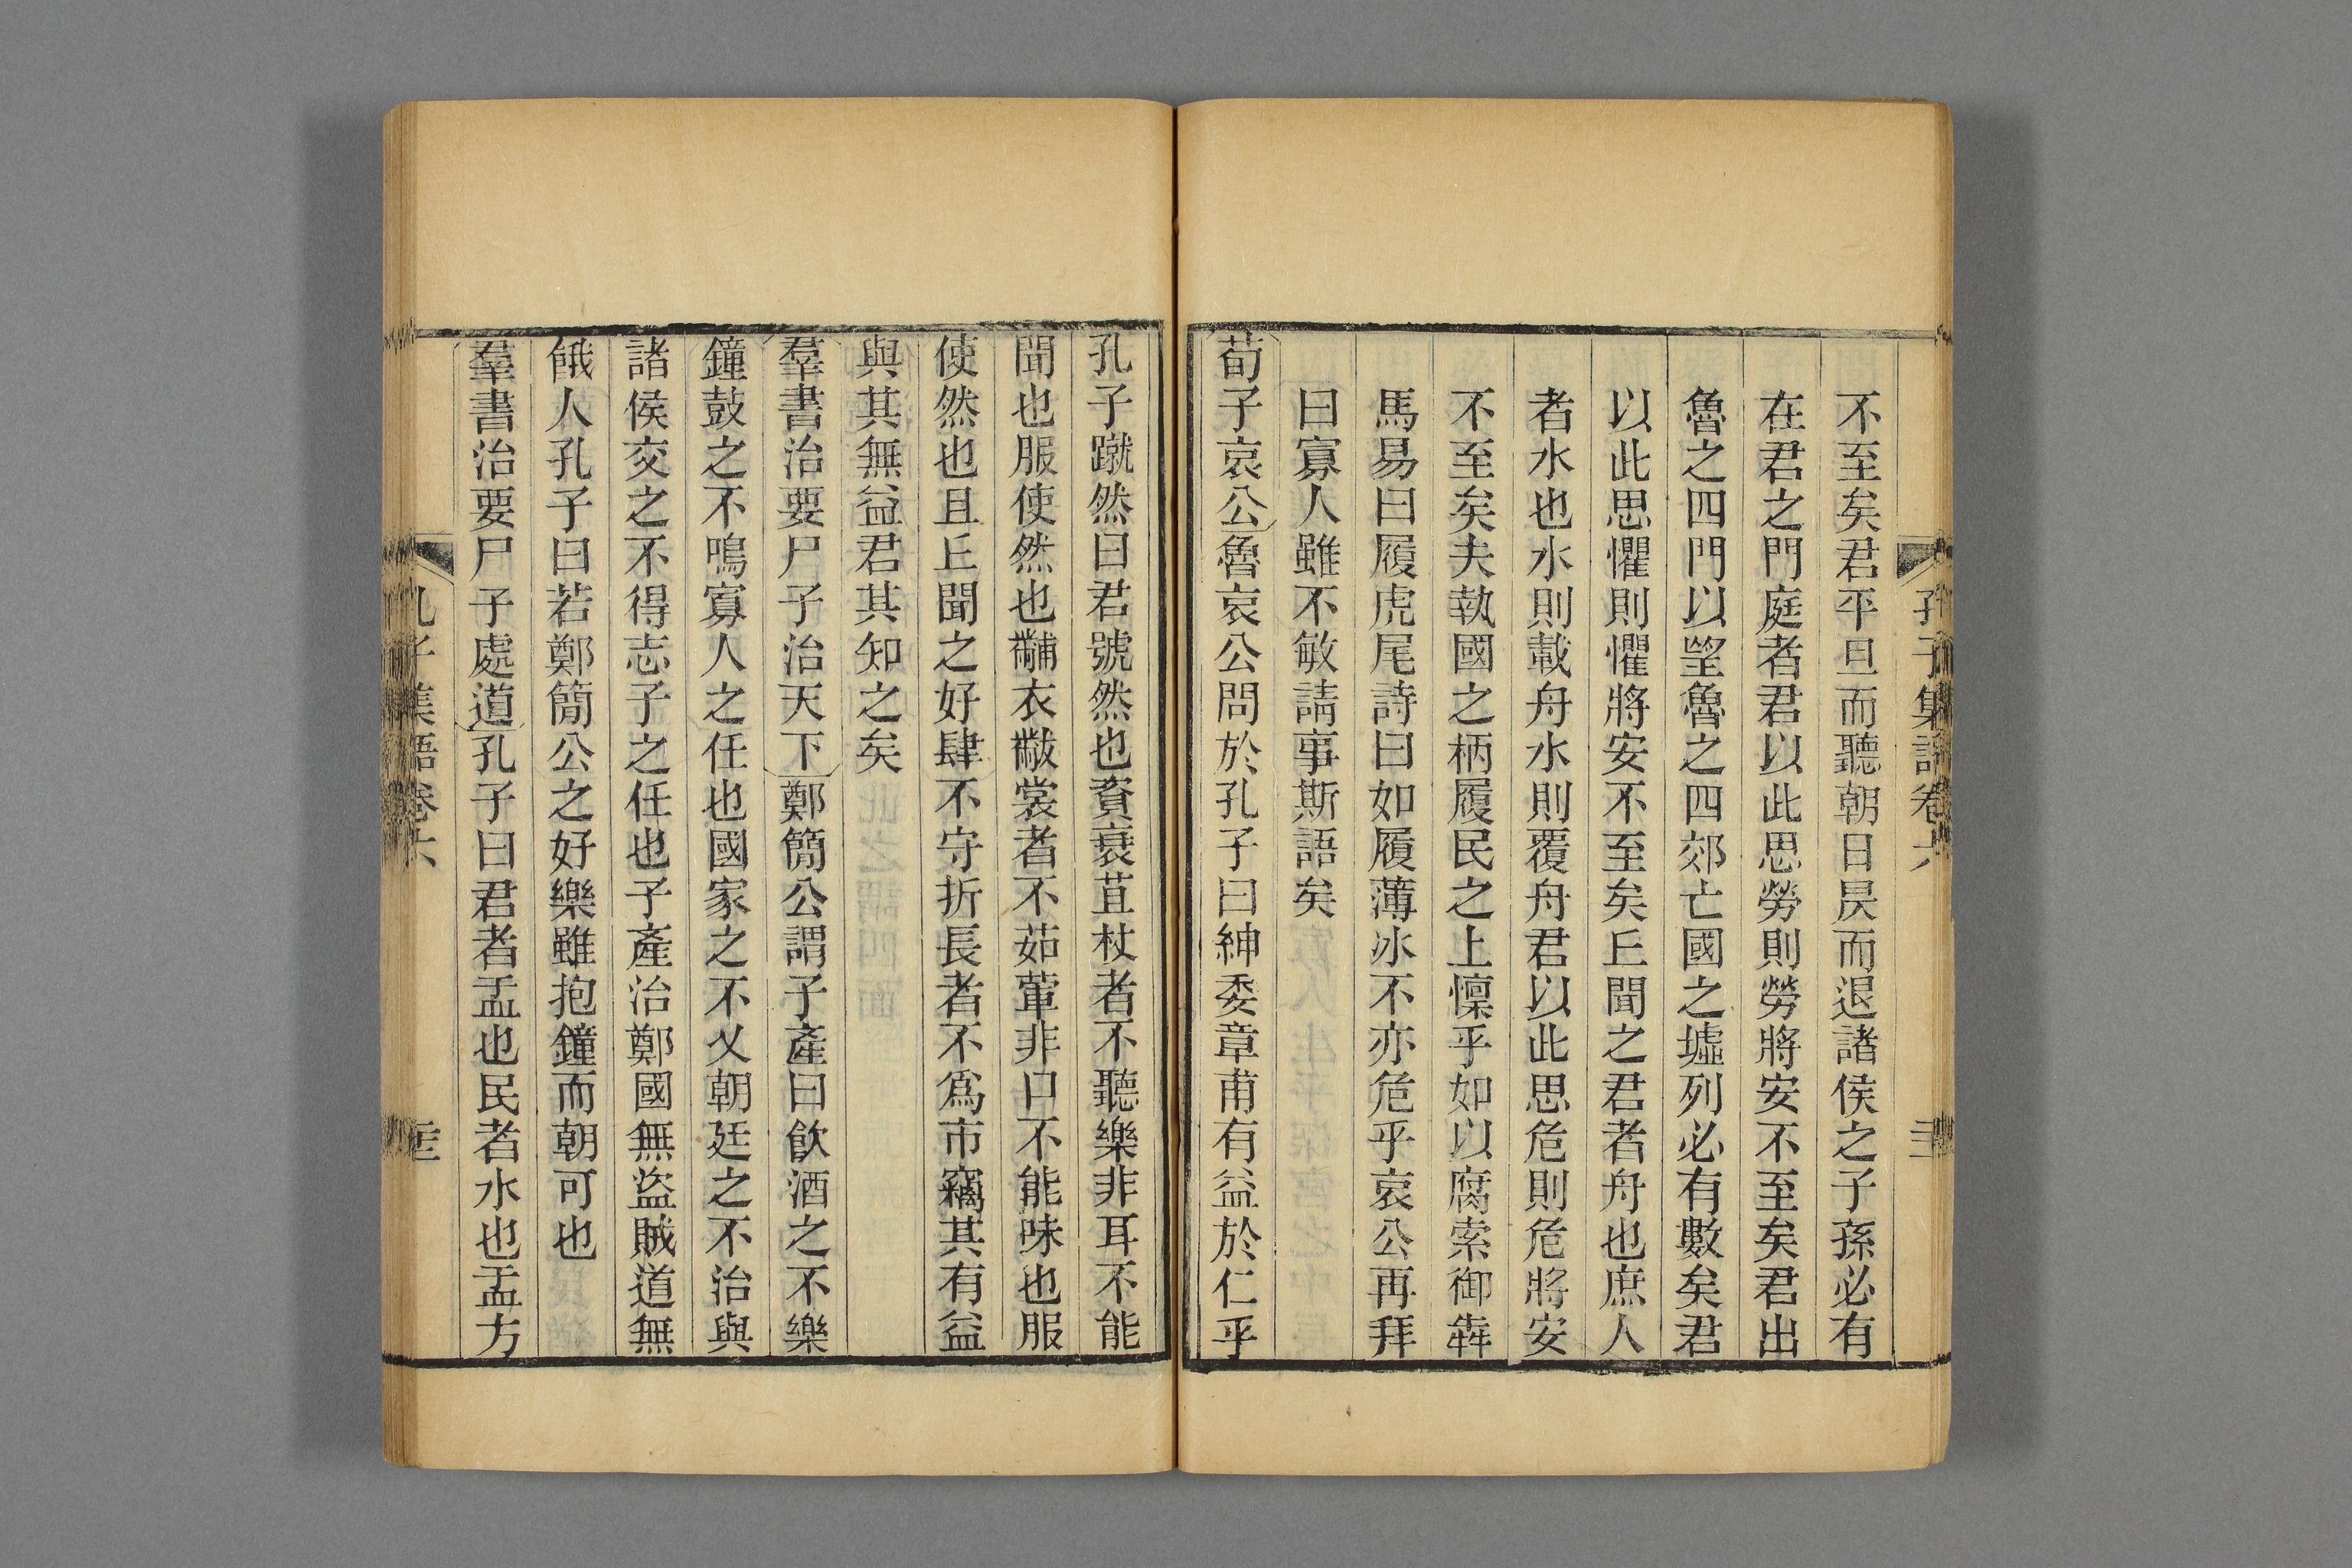 孔子集語卷六
不至矣君平旦而聽朝日昃而退諸侯之子孫必有
在君之門庭者君以此思勞則勞將安不至矣君出
魯之四門以望魯之四郊亡國之墟列必有數矣君
以此思懼則懼將安不至矣丘聞之君者舟也庶人
者水也水則載舟水則覆舟君以此思危則危將安
不至矣夫執國之柄履民之上懍乎如以腐索御犇
馬易曰履虎尾詩曰如履薄冰不亦危乎哀公再拜
曰寡人雖不敏請事斯語矣
荀子哀公魯哀公問於孔子曰紳委章甫有益於仁乎
孔子蹴然曰君號然也資衰苴杖者不聽樂非耳不能
聞也服使然也黼衣黻裳者不茹葷非口不能味也服
使然也且丘聞之好肆不守折長者不爲市竊其有益
與其無益君其知之矣
羣書治要尸子治天下鄭簡公謂子產曰飲酒之不樂
鐘鼓之不鳴寡人之任也國家之不乂朝廷之不治與
諸侯交之不得志子之任也子產治鄭國無盜賊道無
餓人孔子曰若鄭簡公之好樂雖抱鐘而朝可也
羣書治要尸子處道孔子曰君者盂也民者水也盂方
孔子集語卷六